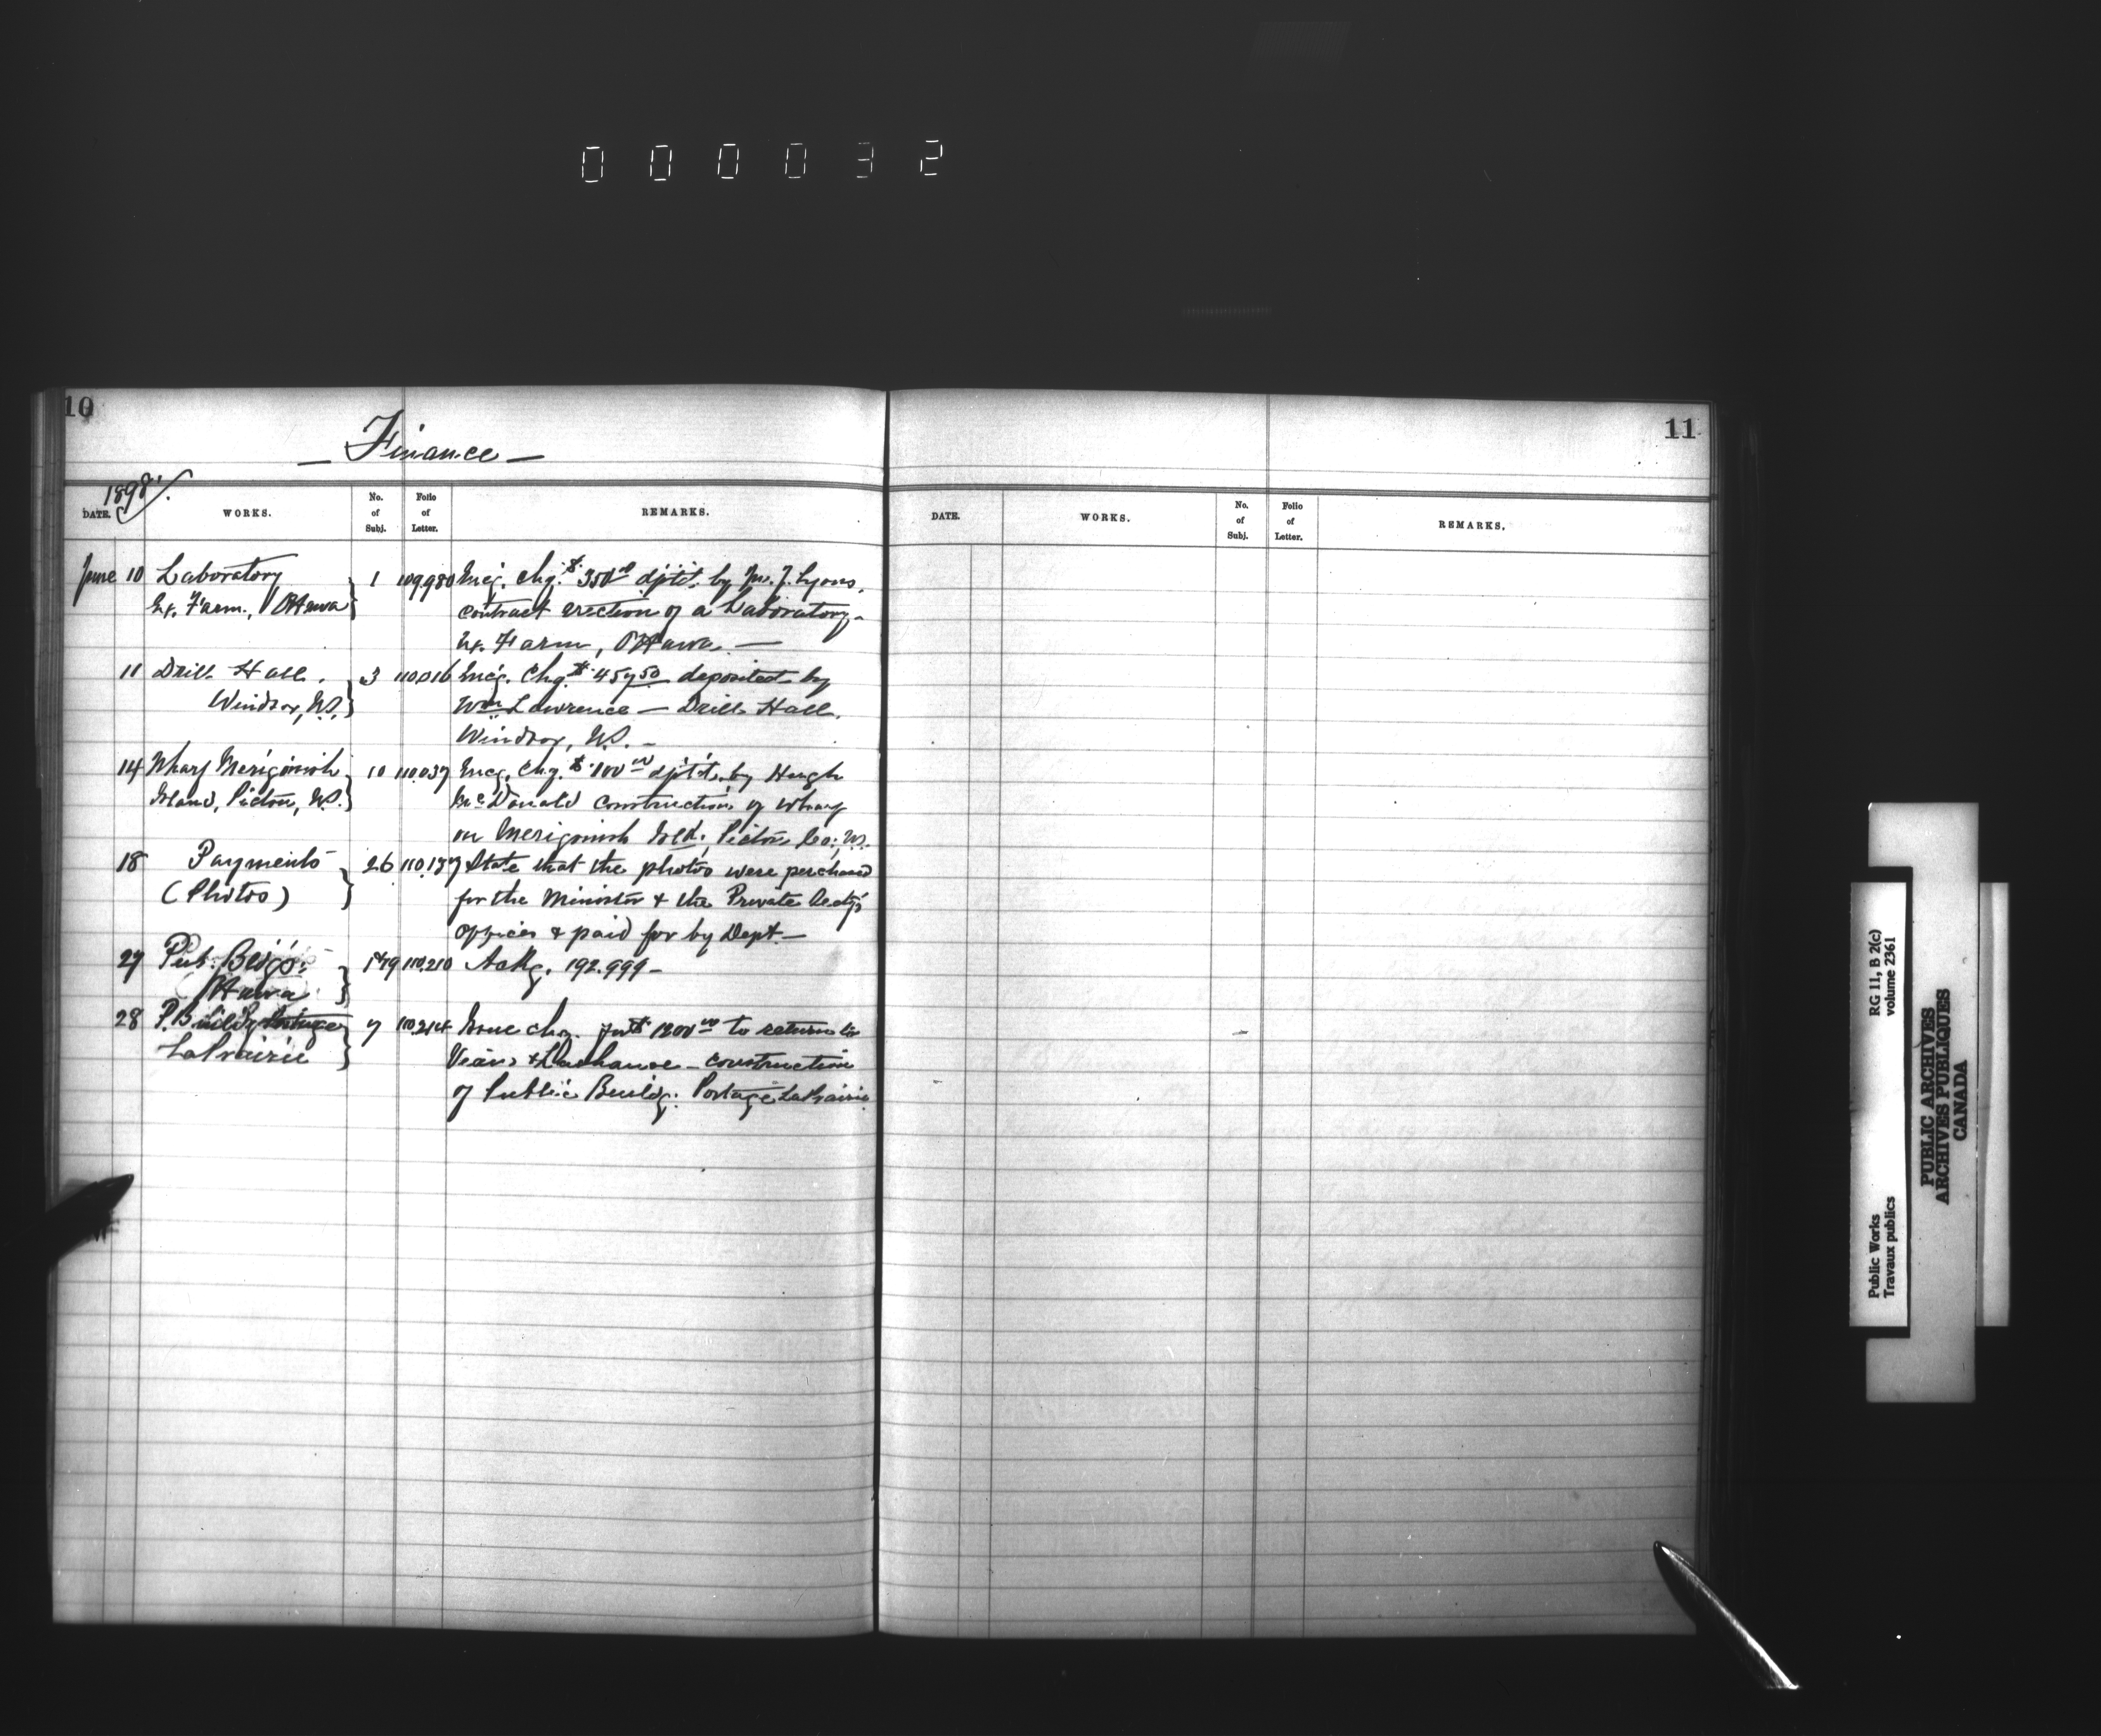 000032
10
— Finance —
1898
DATE. WORKS. No. of Subj. Folio of Letter. REMARKS.
June 10 Laboratory } 1 109980 Encg. Chq. $350.00 dp't'd. by Jno. J. Lyons,
Ex. Farm, Ottawa contract erection of a Laboratory—
Ex. Farm, Ottawa —
11 Drill Hall, } 3 110016 Encg. Chq. $457.50 deposited by
Windsor, N.S. Wm Lawrence — Drill Hall,
Windsor, N.S. —
14 Wharf Merigomish } 10 110037 Encg. Chq. $100.00 dp't'd. by Hugh
Island, Pictou, N.S. McDonald construction of wharf
on Merigomish Isld., Pictou Co., N.S.
18 Payments } 26 State that the photos were purchased
(Photos) for the Minister & the Private Secty's
offices & paid for by Dept.—
27 Pub. Bldgs. } 110210 Ackg. 192.999—
Ottawa
28 P. Buildg Portage } 7 110214 Issue chq. for $1200.00 to return to
LaPrairie & Lachance — construction
of Public Buildg. Portage LaPrairie
11
DATE. WORKS. No. of Subj. Folio of Letter. REMARKS.
Public Works
Travaux publics
RG 11, B 2(c)
volume 2361
PUBLIC ARCHIVES
ARCHIVES PUBLIQUES
CANADA